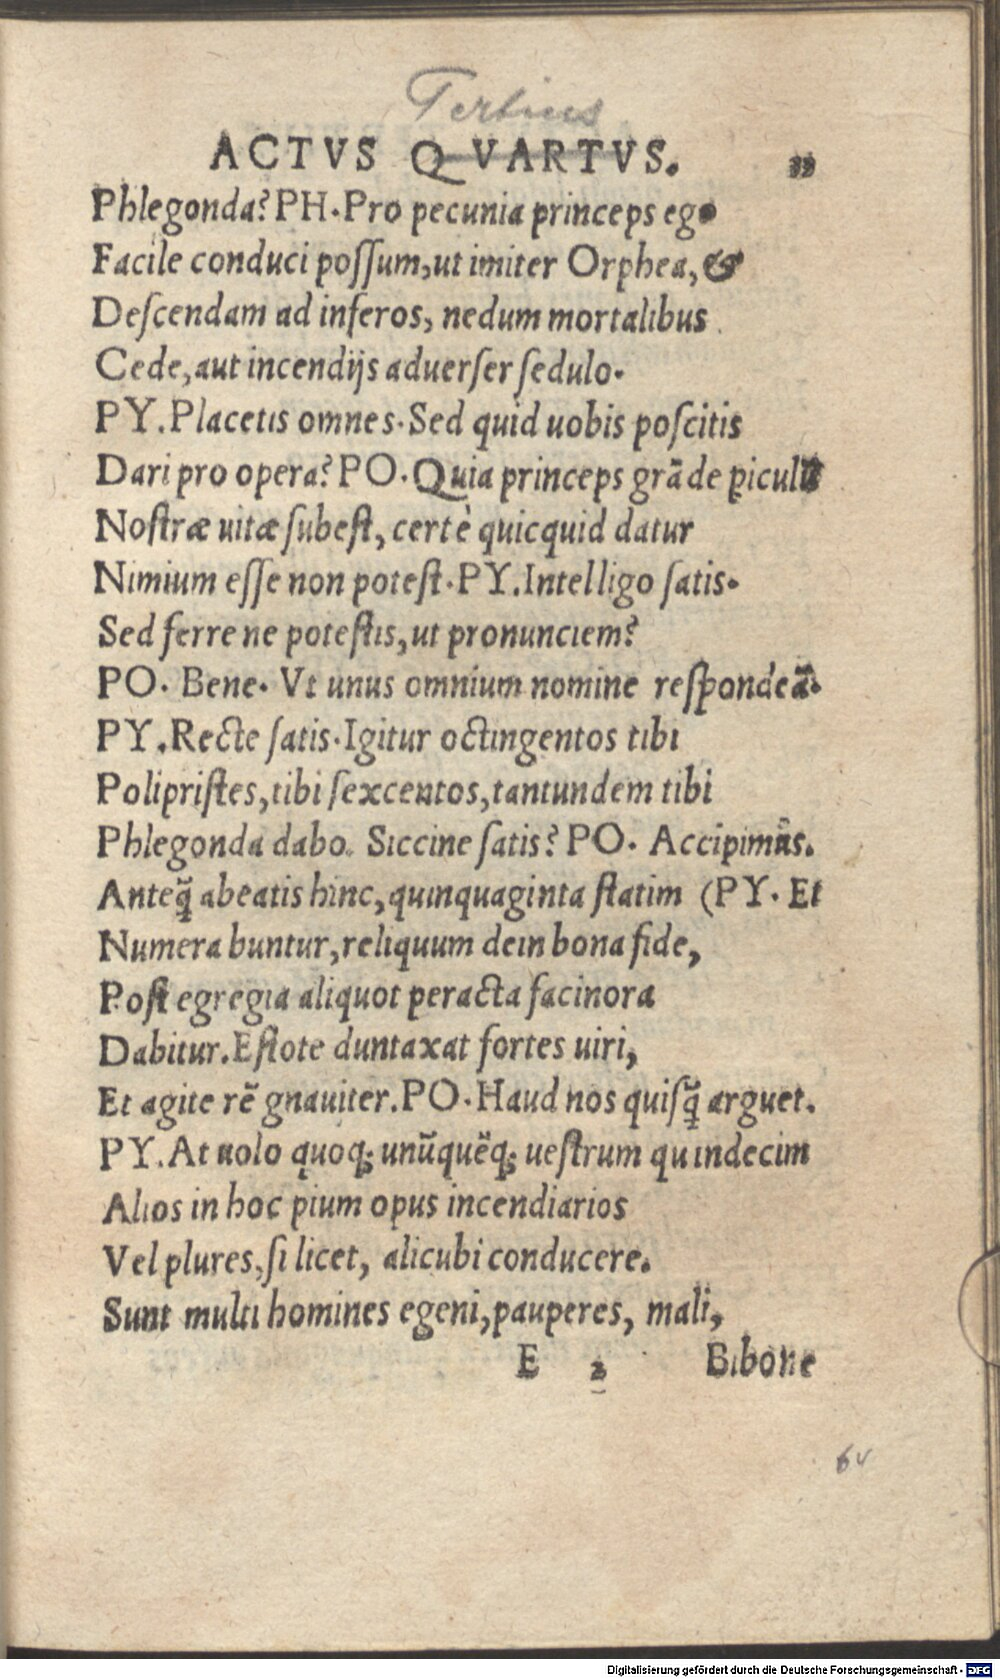 Tertius
ACTVS QVARTVS. 33
Phlegonda? PH. Pro pecunia princeps ego
Facile conduci poſſum, ut imiter Orphea, &
Deſcendam ad inferos, nedum mortalibus
Cede, aut incendijs aduerſer ſedulo.
PY. Placetis omnes. Sed quid uobis poſcitis
Dari pro opera? PO. Quia princeps grāde ꝑiculū
Noſtræ uitæ ſubeſt, certè quicquid datur
Nimium eſſe non poteſt. PY. Intelligo ſatis.
Sed ferre ne poteſtis, ut pronunciem?
PO. Bene. Vt unus omnium nomine reſpondeā.
PY. Recte ſatis. Igitur octingentos tibi
Polipriſtes, tibi ſexcentos, tantundem tibi
Phlegonda dabo. Siccine ſatis? PO. Accipimus.
Anteq̃ abeatis hinc, quinquaginta ſtatim (PY. Et
Numerabuntur, reliquum dein bona fide,
Poſt egregia aliquot peracta facinora
Dabitur. Eſtote duntaxat fortes uiri,
Et agite rē gnauiter. PO. Haud nos quiſq̃ arguet.
PY. At uolo quoq; unūquēq; ueſtrum quindecim
Alios in hoc pium opus incendiarios
Vel plures, ſi licet, alicubi conducere.
Sunt multi homines egeni, pauperes, mali,
E 3 Bibone
64
Digitalisierung gefördert durch die Deutsche Forschungsgemeinschaft - DFG